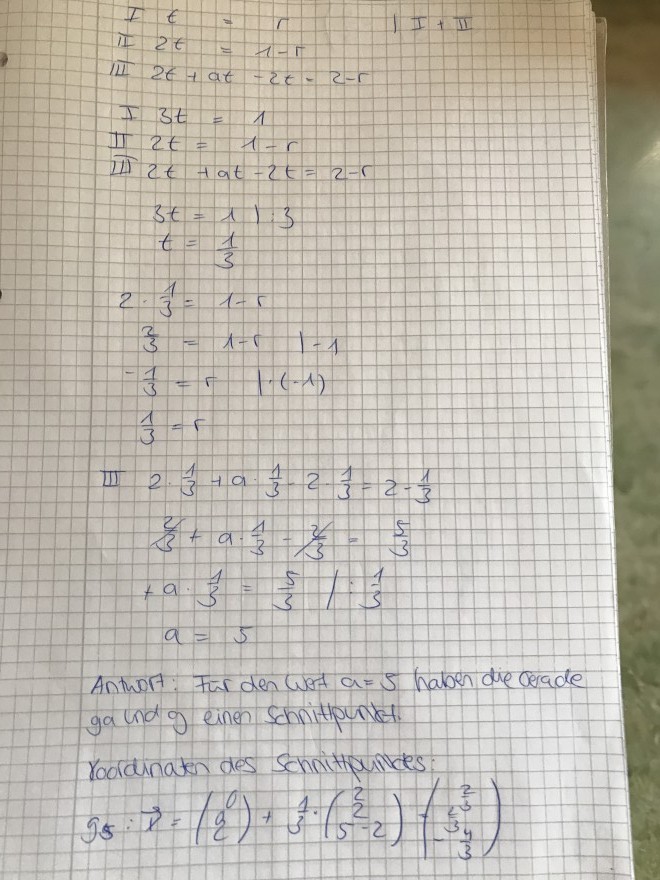 I t = r | I + II
II 2t = 1-r
III 2t + at - 2t = 2-r
I 3t = 1
II 2t = 1-r
III 2t + at - 2t = 2-r
3t = 1 | :3
t = 1/3
2 · 1/3 = 1-r
2/3 = 1-r | -1
-1/3 = r | ·(-1)
1/3 = r
III 2 · 1/3 + a · 1/3 - 2 · 1/3 = 2 - 1/3
2/3 + a · 1/3 - 2/3 = 5/3
+ a · 1/3 = 5/3 | : 1/3
a = 5
Antwort: Für den Wert a = 5 haben die Gerade
ga und g einen Schnittpunkt.
Koordinaten des Schnittpunktes: